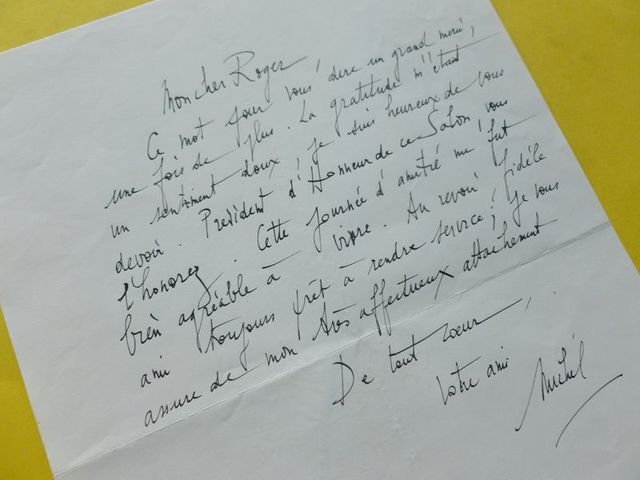 Mon cher Roger
Ce mot pour vous dire un grand merci,
une fois de plus. La gratitude m'étant
un sentiment doux, je suis heureux de vous
devoir. Président d'Honneur de ce Salon, vous
l'honorez. Cette journée d'amitié me fut
bien agréable à vivre. Au revoir, fidèle
ami toujours prêt à rendre service; je vous
assure de mon très affectueux attachement
De tout coeur,
Votre ami
Michel